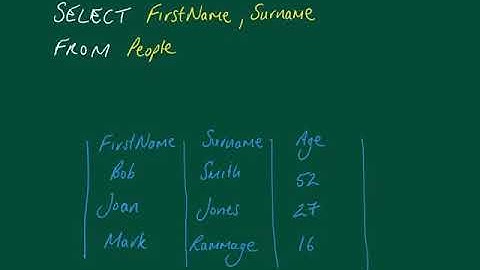 SELECT FirstName, Surname
FROM People
FirstName Surname Age
Bob Smith 52
Joan Jones 27
Mark Rammage 16